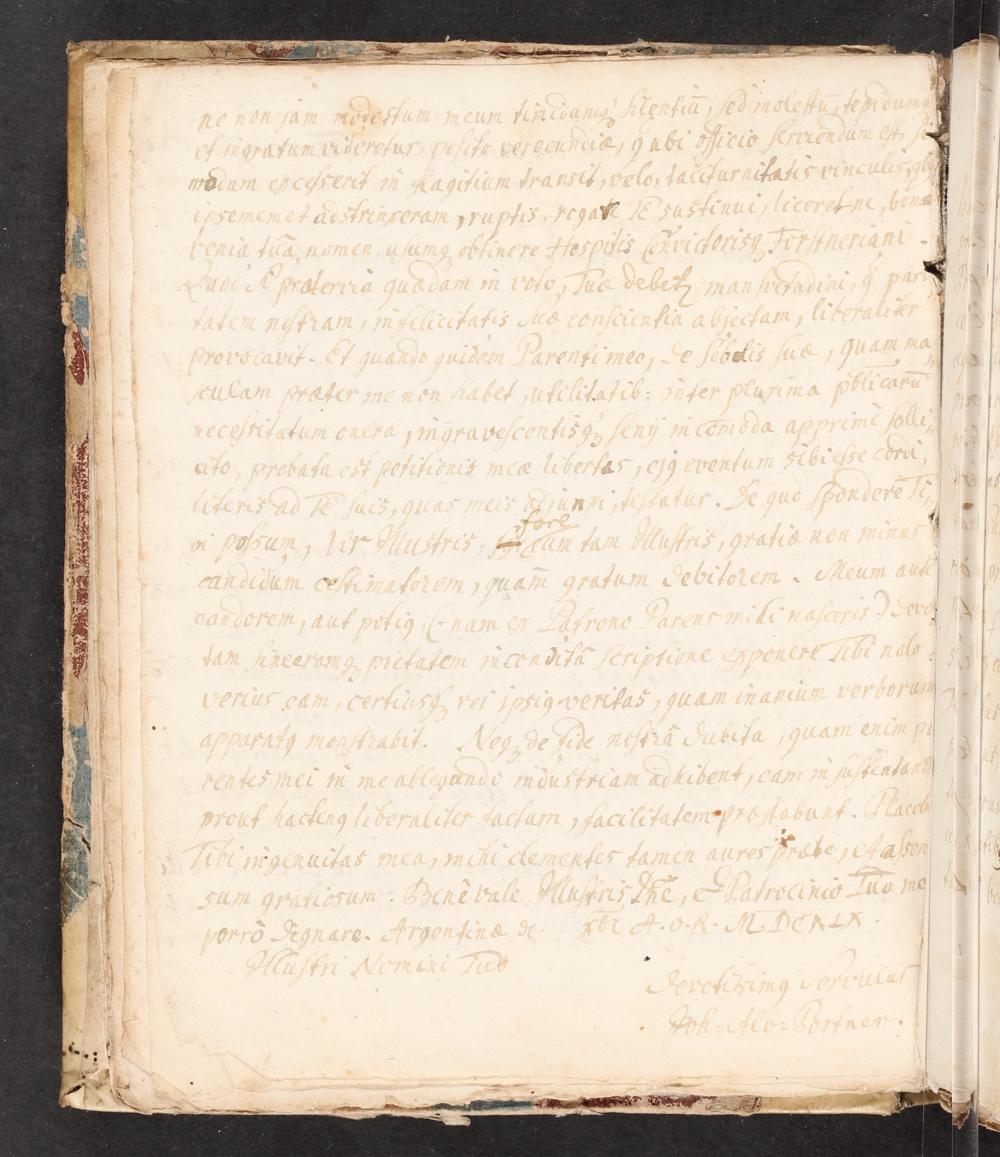 ne non jam modestum meum timidumq; silentiū, sed molestū, tepidumq;
et ingratum videretur, posito verecundiæ, q ubi officio serviendum est, si
modum excesserit in flagitium transit, velo, taciturnitatis vinculis, qb
ipsememet adstrinxeram, ruptis, rogare Te sustinui, liceret ne, bona
venia tua, nomen, usumq; obtinere Hospitis Convictorisq; Forstneriani.
Quod si protervia quædam in voto, Tuæ debetz mansvetudini, q par
tatem nostram, infelicitatis suæ conscientia abjectam, liberaliter
provocavit. Et quando quidem Parenti meo, de Sobolis suæ, quam ma
sculam præter me non habet, utilitatib: inter plurima pblicarū
necessitatum onera, ingravescentisq; senij incōmoda apprimè solli
cito, probata est petitionis meæ libertas, ejq eventum sibi esse cordi,
literis ad Te suis, quas meis adjunxi, testatur. De quo spondere Ti
bi possum, Vir Illustris, fore Eum tam Illustris, gratiæ non minus
candidum æstimatorem, quam gratum debitorem. Meum autē
candorem, aut potiq (: nam ex Patrono Parens mihi nasceris) devo
tam sinceramq; pietatem inconditâ scriptione exponere Tibi nolo:
verius eam, certiusq; rei ipsiq veritas, quam inanium verborum
apparatq monstrabit. Neq; de fide nostrâ dubita, quam enim pa
rentes mei in me ablegando industriam adhibent, eam in sustentando
prout hactenq liberaliter factum, facilitatem præstabunt. Placeb
Tibi ingenuitas mea, mihi clementes tamen aures præbe, et assen
sum gratiosum. Benè vale, Illustris Dn̄e, et Patrocinio Tuo me
porrò dignare. Argentinæ d. xbr. A. O. R. MDCXLIX.
Illustri Nomini Tuo
devotissimq Servulus
Joh: Alb: Portner.